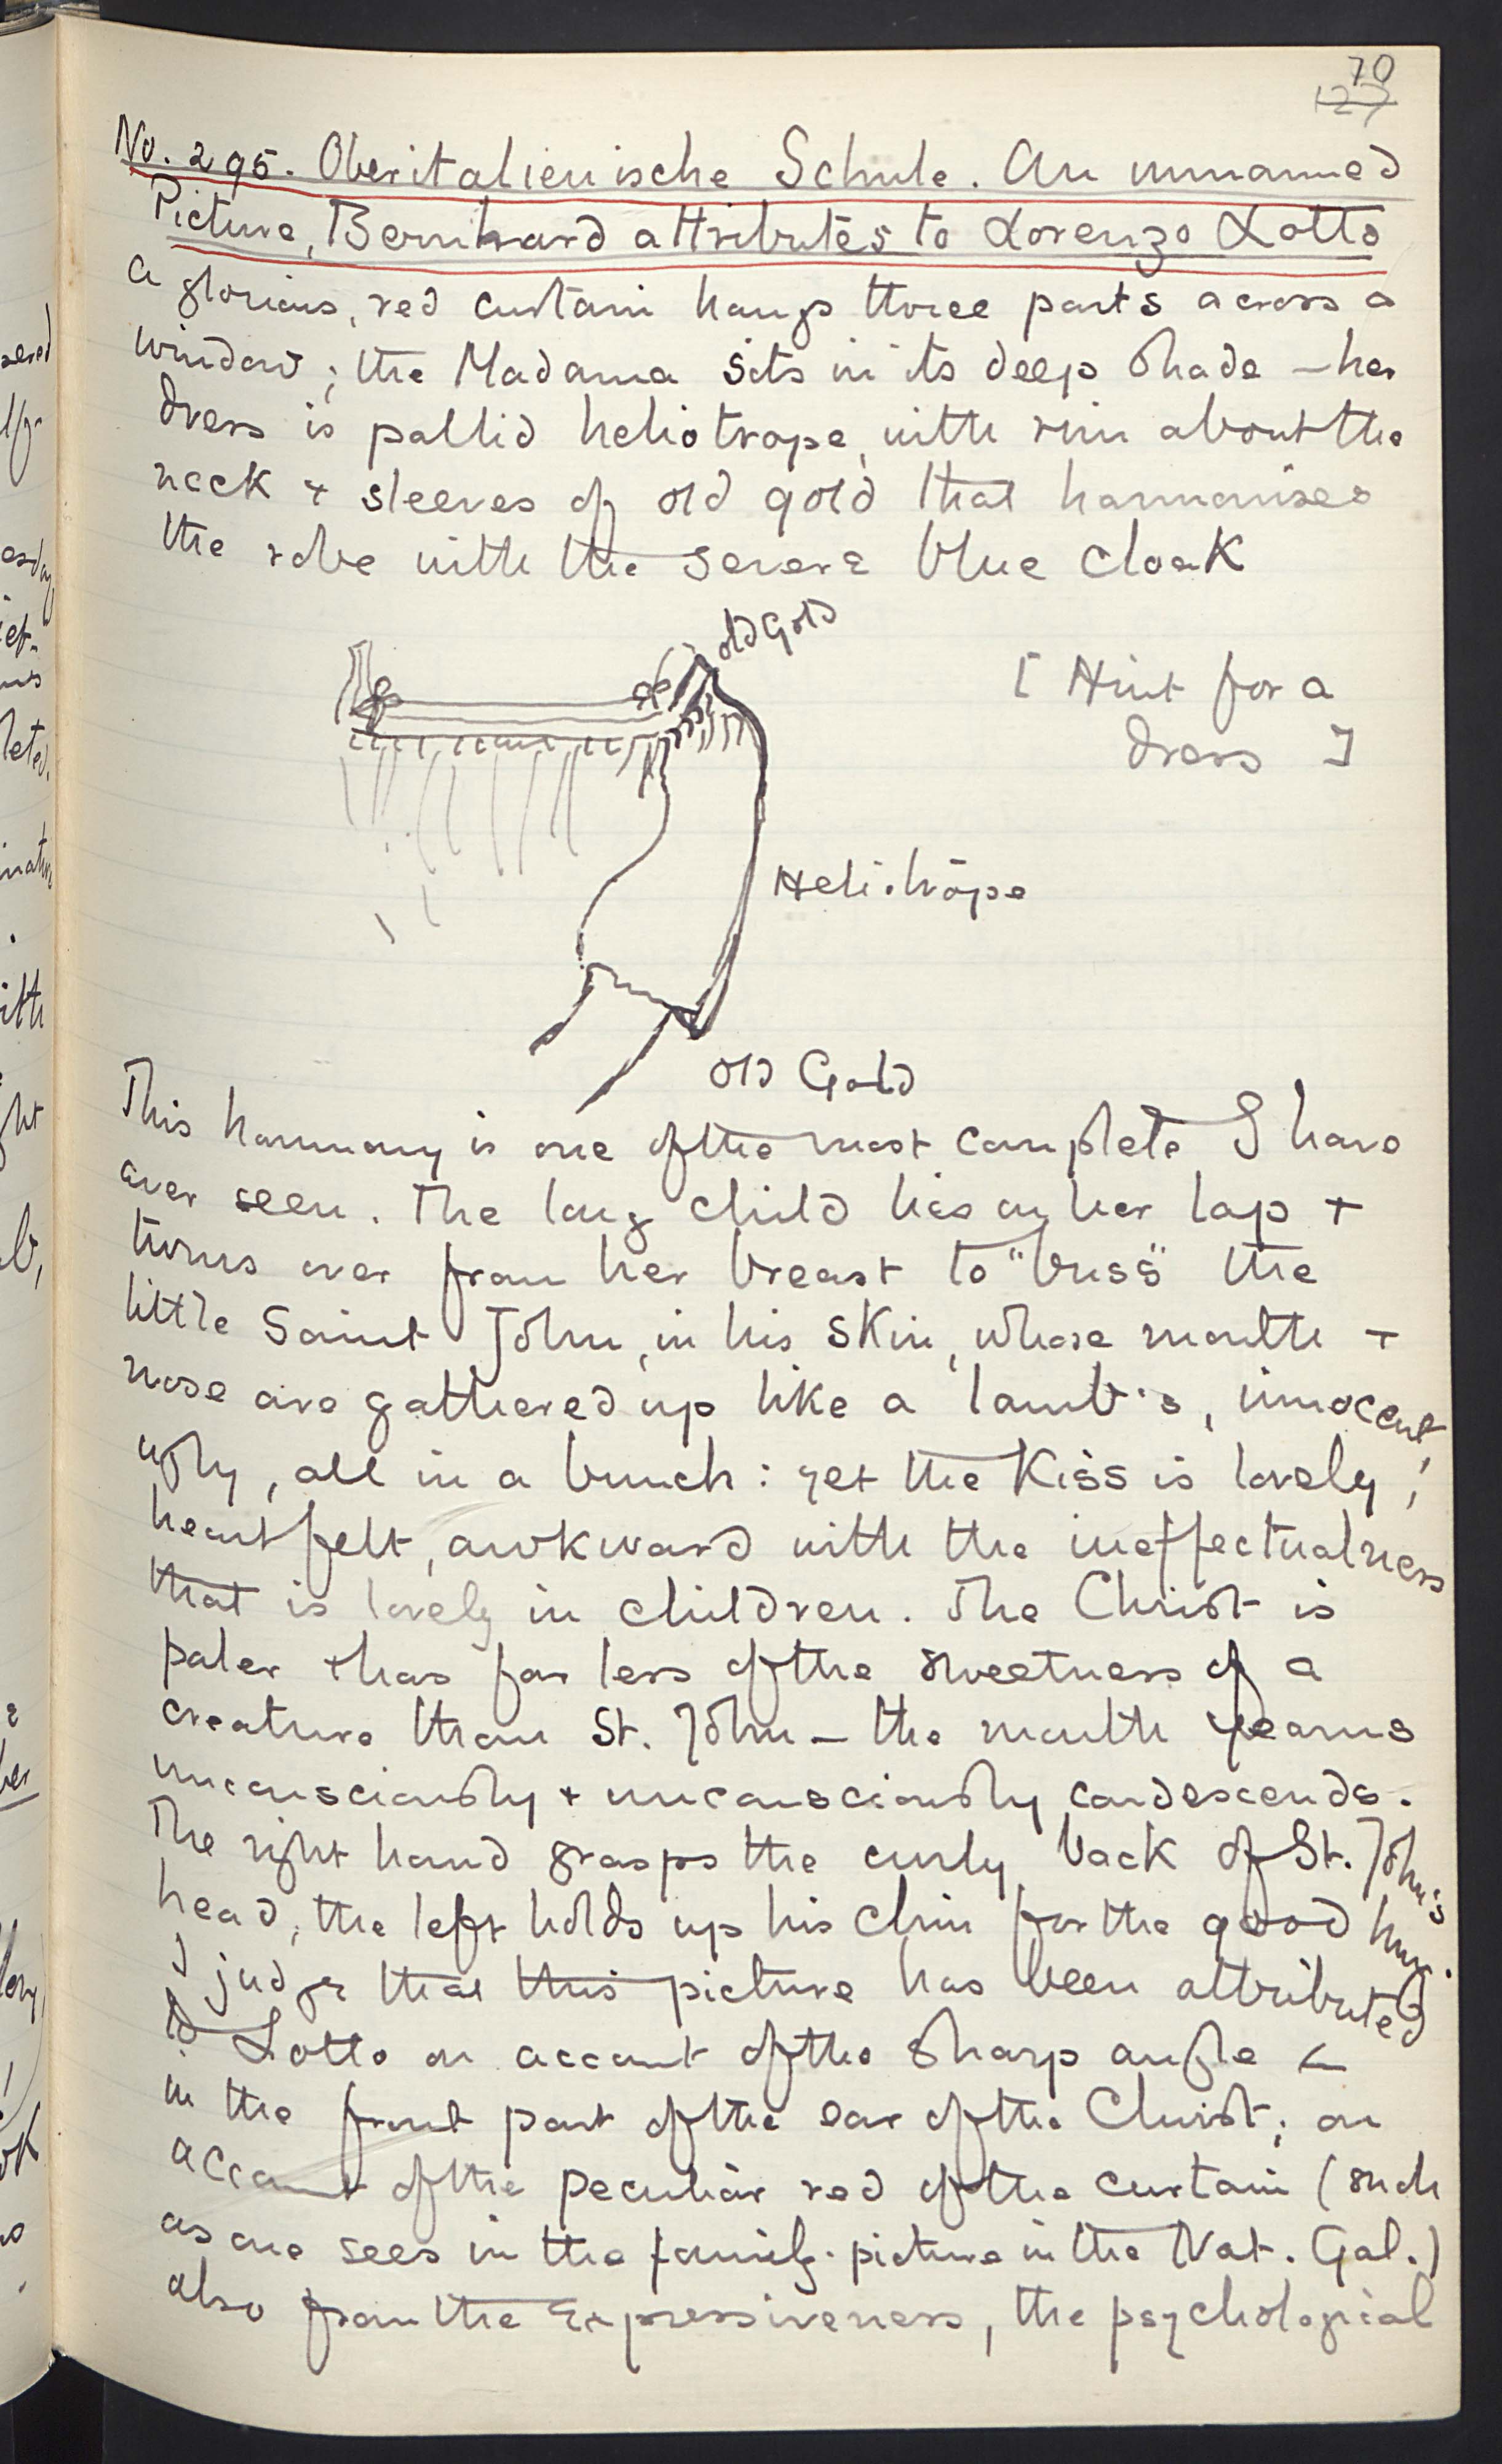 70
127
No. 295. Oberitalienische Schule. An unnamed
Picture, Bernhard attributes to Lorenzo Lotto
A glorious, red curtain hangs three parts across a
window; the Madonna sits in its deep shade – her
dress is pallid heliotrope, with rim about the
neck + sleeves of old gold that harmonises
the robe with the severe blue cloak
old Gold
[ Hint for a
dress ]
Heliotrope
Old Gold
This harmony is one of the most complete I have
ever seen. The long child lies on her lap +
turns over from her breast to "buss" the
little Saint John, in his skin, whose mouth +
nose are gathered up like a lamb's, innocent,
ugly, all in a bunch: yet the Kiss is lovely,
heartfelt, awkward with the ineffectualness
that is lovely in children. The Christ is
paler + has far less of the sweetness of a
creature than St. John – the mouth yearns
unconsciously + unconsciously condescends.
The right hand grasps the curly back of St. John's
head, the left holds up his chin for the good hug.
I judge that this picture has been attributed
to Lotto on account of the sharp angle <
in the front part of the ear of the Christ; on
account of the peculiar red of the curtain (such
as one sees in the family-picture in the Nat. Gal.)
also from the Expressiveness, the psychological